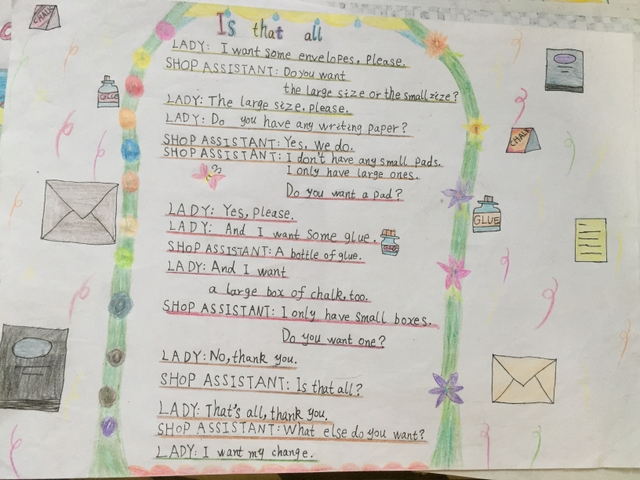 Is that all
LADY: I want some envelopes, please.
SHOP ASSISTANT: Do you want
the large size or the small size?
LADY: The large size, please.
LADY: Do you have any writing paper?
SHOP ASSISTANT: Yes, we do.
SHOP ASSISTANT: I don't have any small pads.
I only have large ones.
Do you want a pad?
LADY: Yes, please.
LADY: And I want some glue.
SHOP ASSISTANT: A bottle of glue.
LADY: And I want
a large box of chalk, too.
SHOP ASSISTANT: I only have small boxes.
Do you want one?
LADY: No, thank you.
SHOP ASSISTANT: Is that all?
LADY: That's all, thank you.
SHOP ASSISTANT: What else do you want?
LADY: I want my change.
CHALK
GLUE
CHALK
GLUE